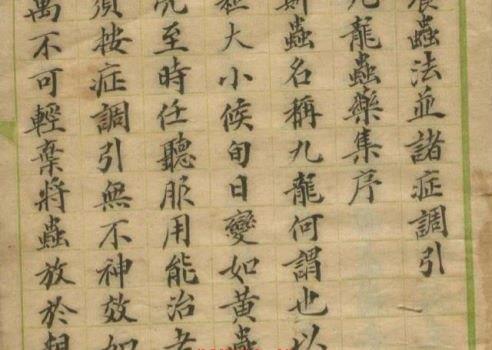 蟲法並諸症調引
九龍蟲藥集序
蟲名稱九龍何謂也以
大小候旬日變如黃蟲
至時任聽服用能治者
須按症調引無不神效如
萬不可輕棄將蟲放於